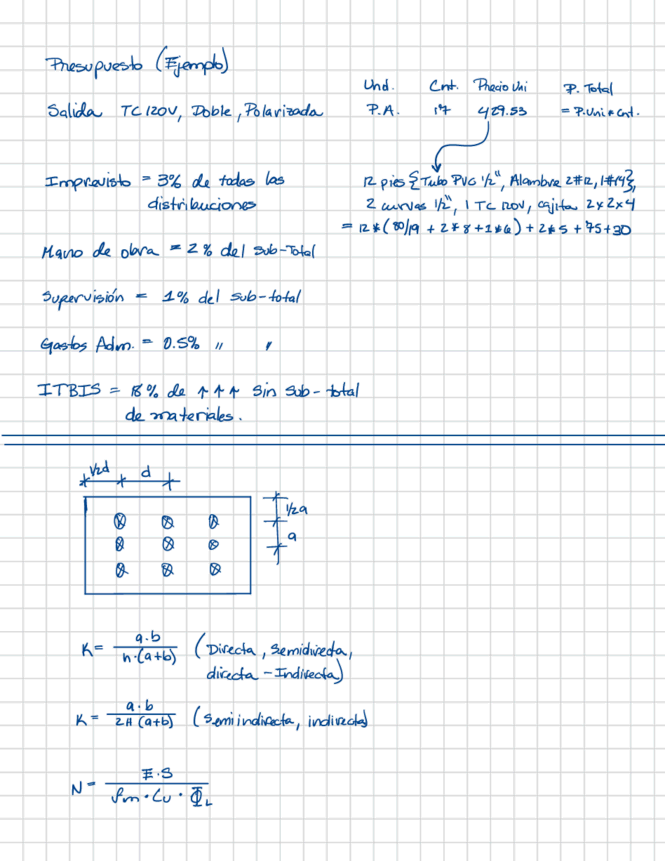 Presupuesto (Ejemplo)
Und. Cnt. Precio Uni P. Total
Salida TC 120V, Doble, Polarizada P.A. 17 429.53 = P.Uni * Cnt.
Imprevisto = 3% de todas las distribuciones
12 pies {Tubo PVC 1/2", Alambre 2#12, 1#14},
2 curvas 1/2", 1 TC 120V, cajita 2x2x4
= 12 * (80/19 + 2*8 + 1*6) + 2*5 + 75 + 30
Mano de obra = 2% del sub-Total
Supervisión = 1% del sub-total
Gastos Adm. = 0.5% " "
ITBIS = 18% de ↑↑↑ sin sub-total
de materiales.
1/2d d
1/2a
a
K = a.b / h.(a+b) (Directa, Semidirecta,
directa - Indirecta)
K = a.b / 2H (a+b) (Semiindirecta, indirecta)
N = E.S / fm . Cu . ΦL